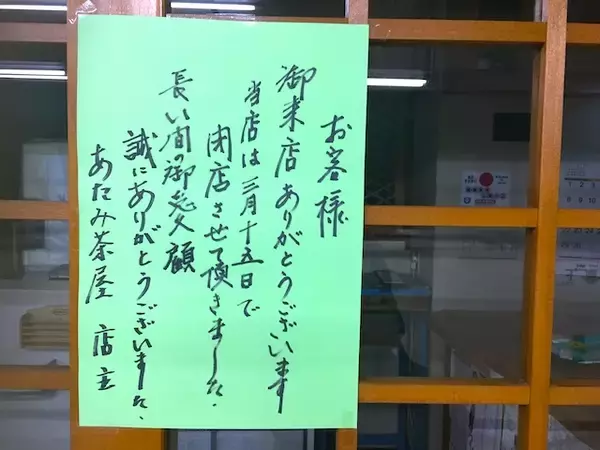 お客様
御来店ありがとうございます
当店は三月十五日で
閉店させて頂きました。
長い間の御愛顧
誠にありがとうございました。
あたみ茶屋 店主